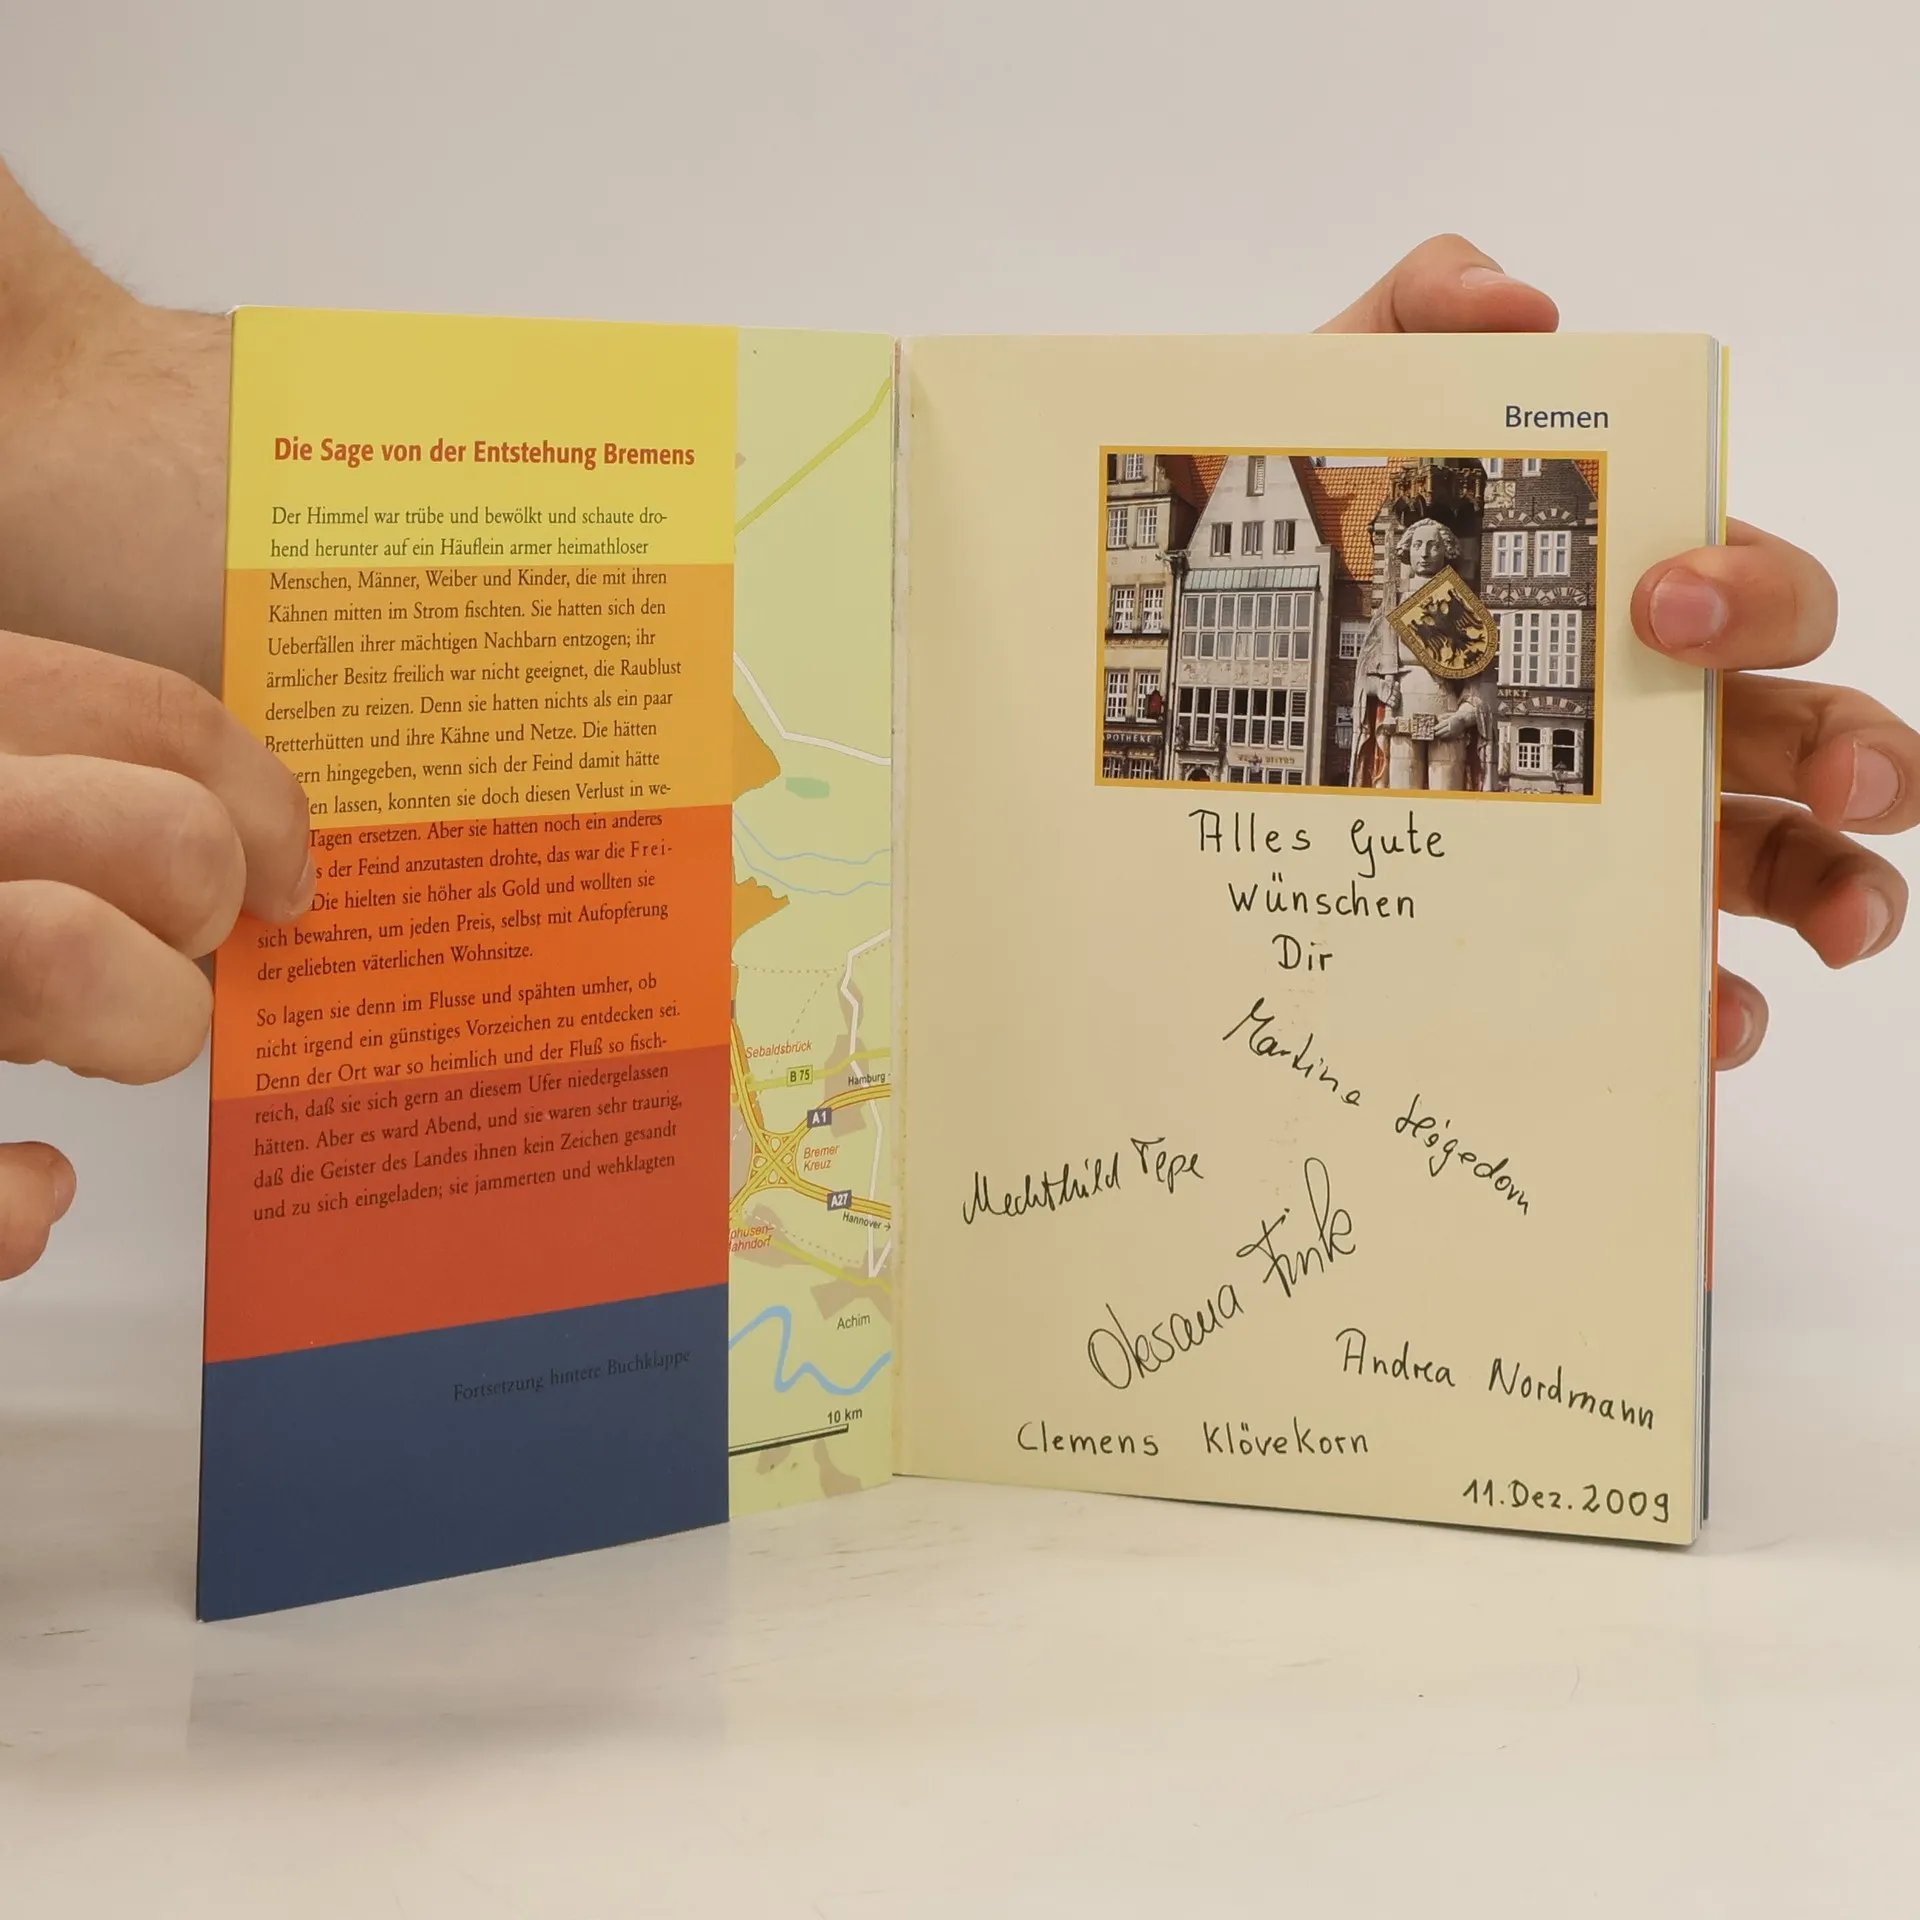 Die Sage von der Entstehung Bremens
Der Himmel war trübe und bewölkt und schaute dro-
hend herunter auf ein Häuflein armer heimathloser
Menschen, Männer, Weiber und Kinder, die mit ihren
Kähnen mitten im Strom fischten. Sie hatten sich den
Ueberfällen ihrer mächtigen Nachbarn entzogen; ihr
ärmlicher Besitz freilich war nicht geeignet, die Raublust
derselben zu reizen. Denn sie hatten nichts als ein paar
Bretterhütten und ihre Kähne und Netze. Die hätten
ern hingegeben, wenn sich der Feind damit hätte
en lassen, konnten sie doch diesen Verlust in we-
Tagen ersetzen. Aber sie hatten noch ein anderes
s der Feind anzutasten drohte, das war die Frei-
Die hielten sie höher als Gold und wollten sie
sich bewahren, um jeden Preis, selbst mit Aufopferung
der geliebten väterlichen Wohnsitze.
So lagen sie denn im Flusse und spähten umher, ob
nicht irgend ein günstiges Vorzeichen zu entdecken sei.
Denn der Ort war so heimlich und der Fluß so fisch-
reich, daß sie sich gern an diesem Ufer niedergelassen
hätten. Aber es ward Abend, und sie waren sehr traurig,
daß die Geister des Landes ihnen kein Zeichen gesandt
und zu sich eingeladen; sie jammerten und wehklagten
Fortsetzung hintere Buchklappe
Sebaldsbrück
B 75
Hamburg
A1
Bremer
Kreuz
A27
Hannover →
phusen-
ahndorf
Achim
10 km
Bremen
POTHEKE
ARKT
Alles Gute
Wünschen
Dir
Martina Högedorn
Mechthild Tepe
Oksana Funk
Andrea Nordmann
Clemens Klövekorn
11. Dez. 2009